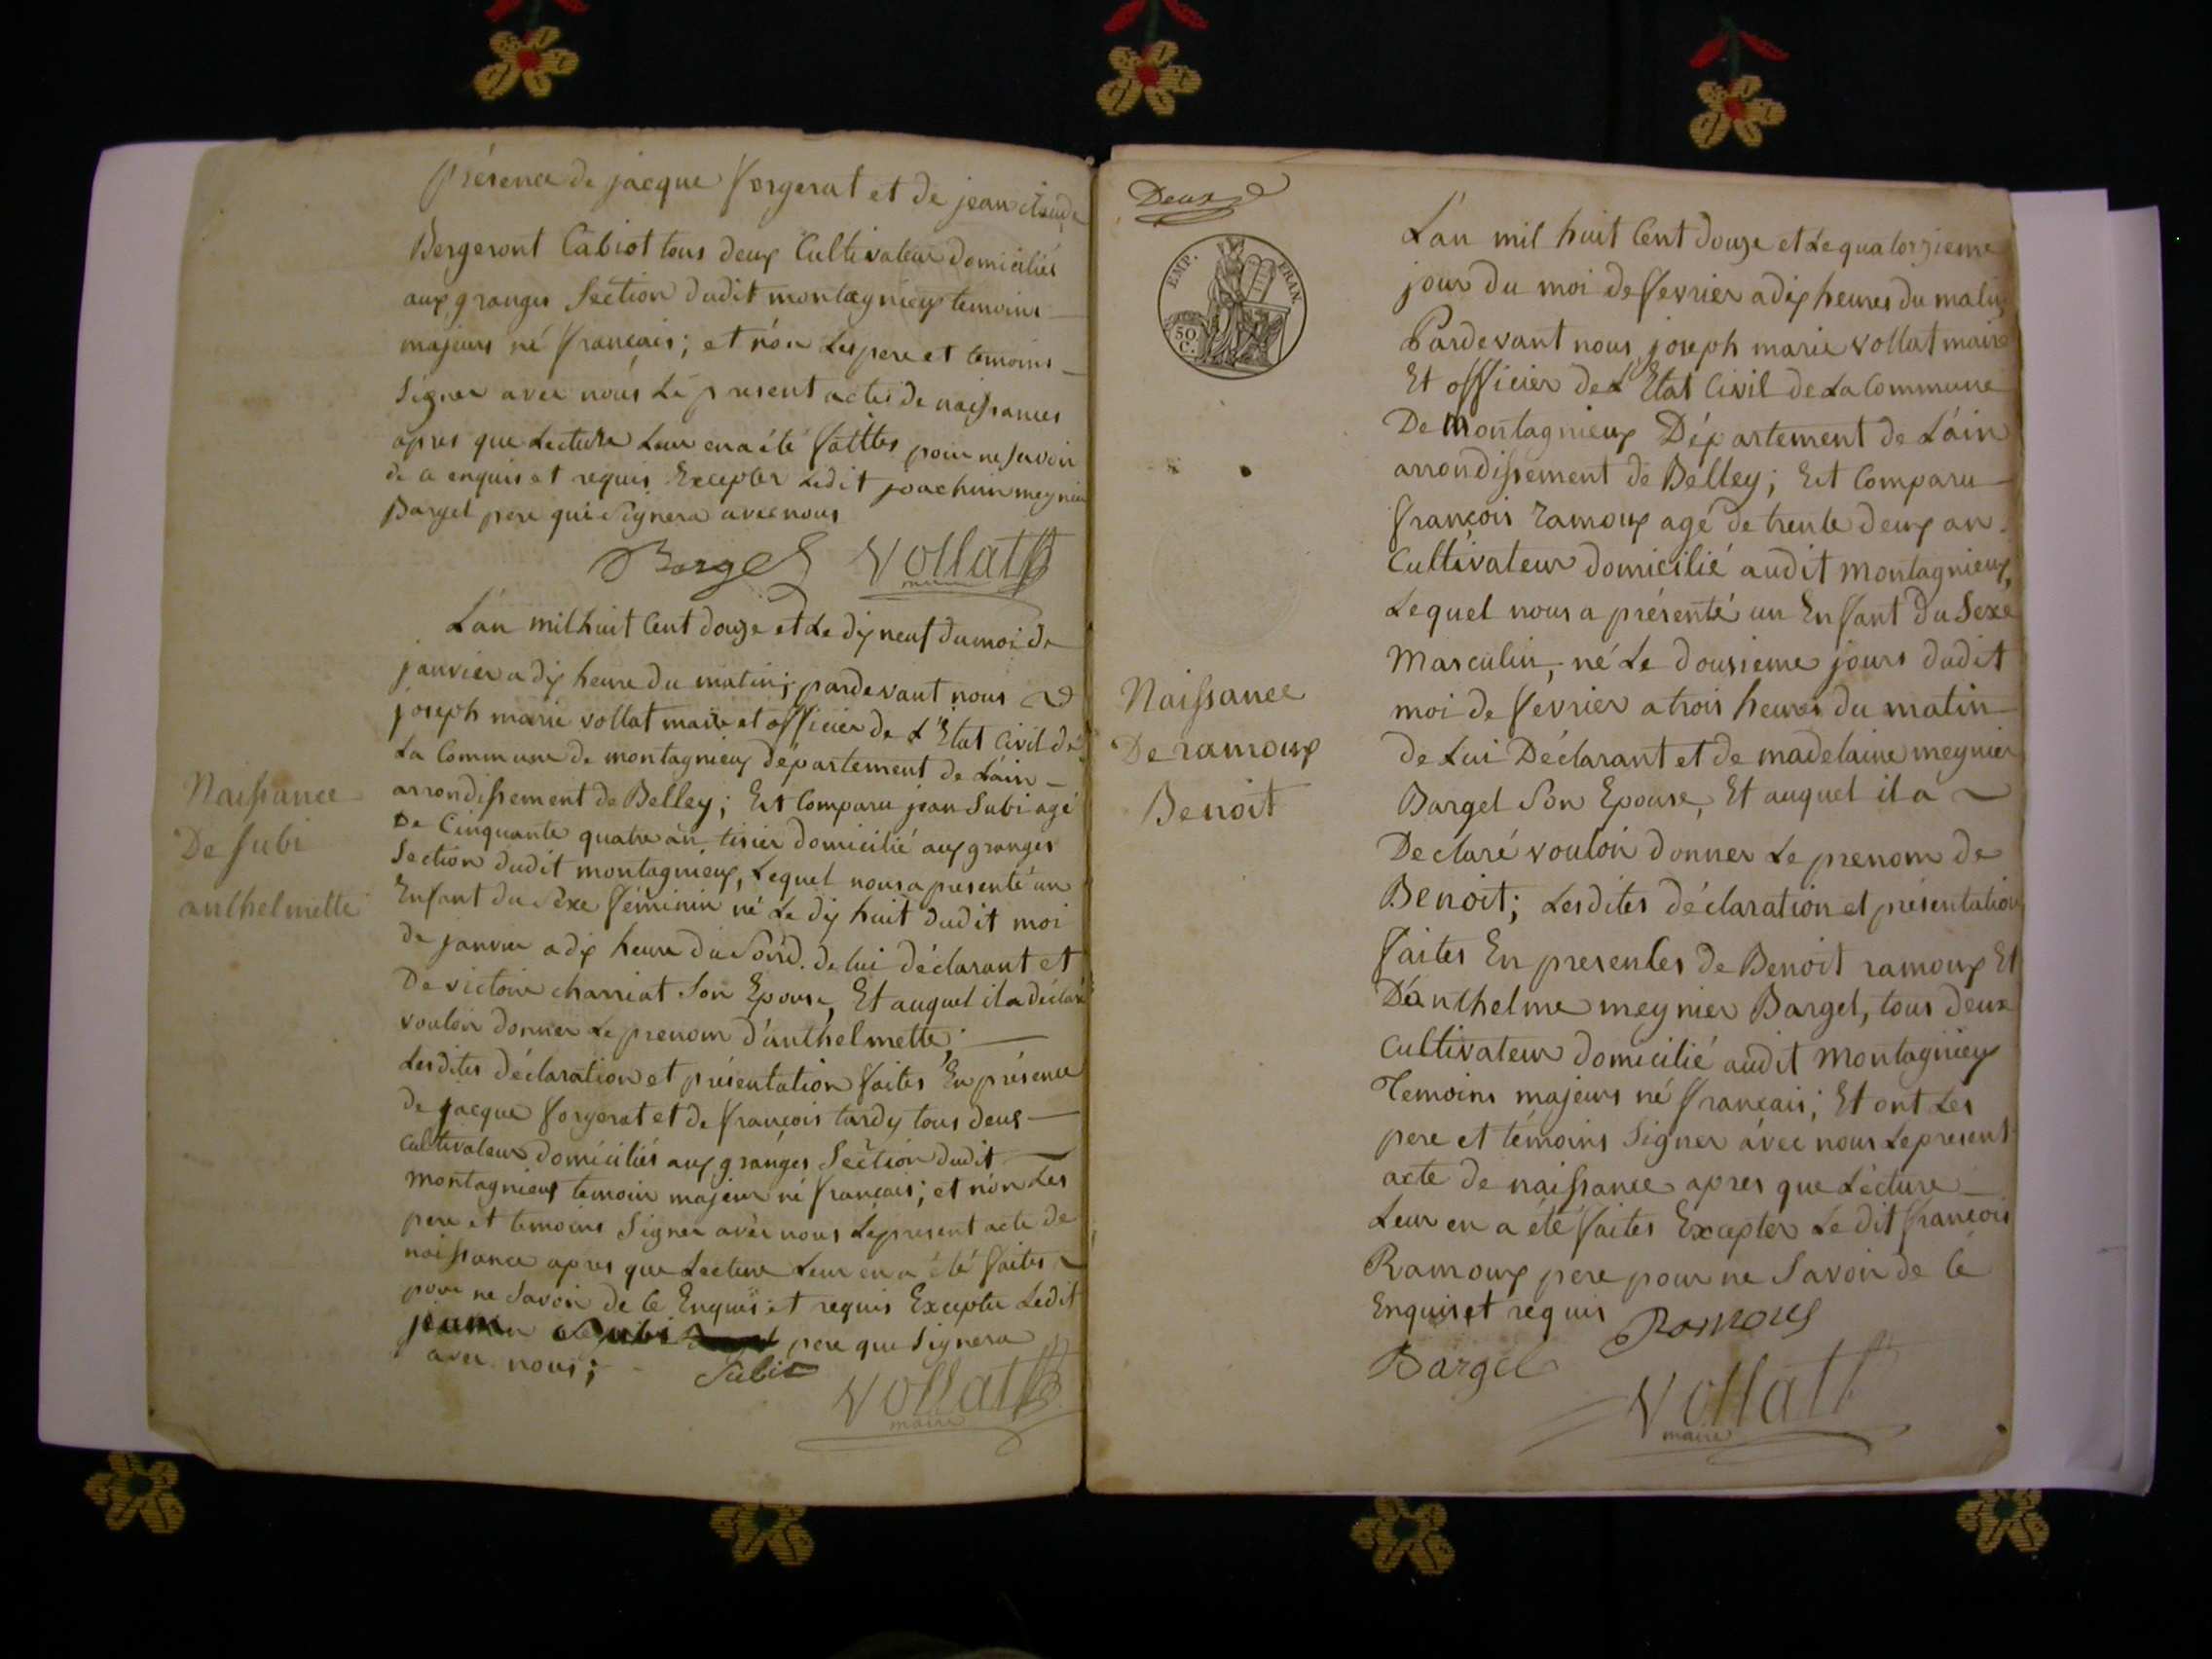 présence de jacque forgerat et de jean claude
Bergeront Cabiot tous deux Cultivateur domiciliés
aux granges Section dudit montagnieux temoins
majeurs né français; et nón Les pere et temoins
Signer avec nous Le present acte de naissances
apres que Lecture Leur en a été faittes pour ne savoir
de ce enquis et requis Excepter Ledit joachim meynier
Bargel pere qui Signera avec nous
Bargel Vollat
maire
L'án mil huit Cent douze et Le dix neuf du moi de
janvier a dix heure du matin; pardevant nous
joseph marie vollat maire et officier de L'Etat Civil de
La Commune de montagnieux département de L'ain
arrondissement de Belley; Est Comparu jean Subi agé
De Cinquante quatre an tisier domicilié aux granges
Section dudit montagnieux, Lequel nous a presenté un
Enfant du Sexe féminin né Le dix huit dudit moi
de janvier a dix heure du Soird. de lui déclarant et
De victoire charriat Son Epouse, Et auquel il a déclaré
vouloir donner Le prenom d'anthelmette
Lesdites déclaration et présentation faites En présence
de jacque forgerat et de françois tardy tous deux
Cultivateur domiciliés aux granges Section dudit
montagnieux temoin majeur né francais; et nón Les
pere et temoins Signer avec nous Le present acte de
naissance apres que Lecture Leur en a été faites
pour ne Savoir de Ce Enquis et requis Excepter Ledit
jean Subi pere que Signera
avec nous;
Subit
Vollat
maire
Naissance
De Subi
anthelmette
Deux
EMP. FRAN.
50 C.
L'án mil huit Cent douze et Le quatorzieme
jour du moi de fevrier a dix heures du matin
Pardevant nous joseph marie vollat maire
Et officier de L'Etat Civil de La Commune
De Montagnieux Département de L'áin
arrondissement de Belley; Est Comparu
françois ramoux agé de trente deux an.
Cultivateur domicilié audit montagnieux,
Lequel nous a présenté un Enfant du Sexe
Masculin, né Le dousieme jours dudit
moi de fevrier a trois heures du matin
de Lui Déclarant et de madelaine meynier
Bargel Son Epouse, Et auquel il a
Declaré vouloir donner Le prenom de
Benoit; Lesdites déclaration et présentation
faites En presentes de Benoit ramoux Et
D'ánthelme meynier Bargel, tous deux
Cultivateur domicilié audit Montagnieux
Temoins majeurs né français; Et ont Les
pere et témoins Signer avec nous Le present
acte de naissance apres que Lécture
Leur en a été faites Excepter Le dit françois
Ramoux pere pour ne Savoir de Ce
Enquis et requis
Ramoux
Bargel
Vollat
maire
Naissance
De ramoux
Benoit